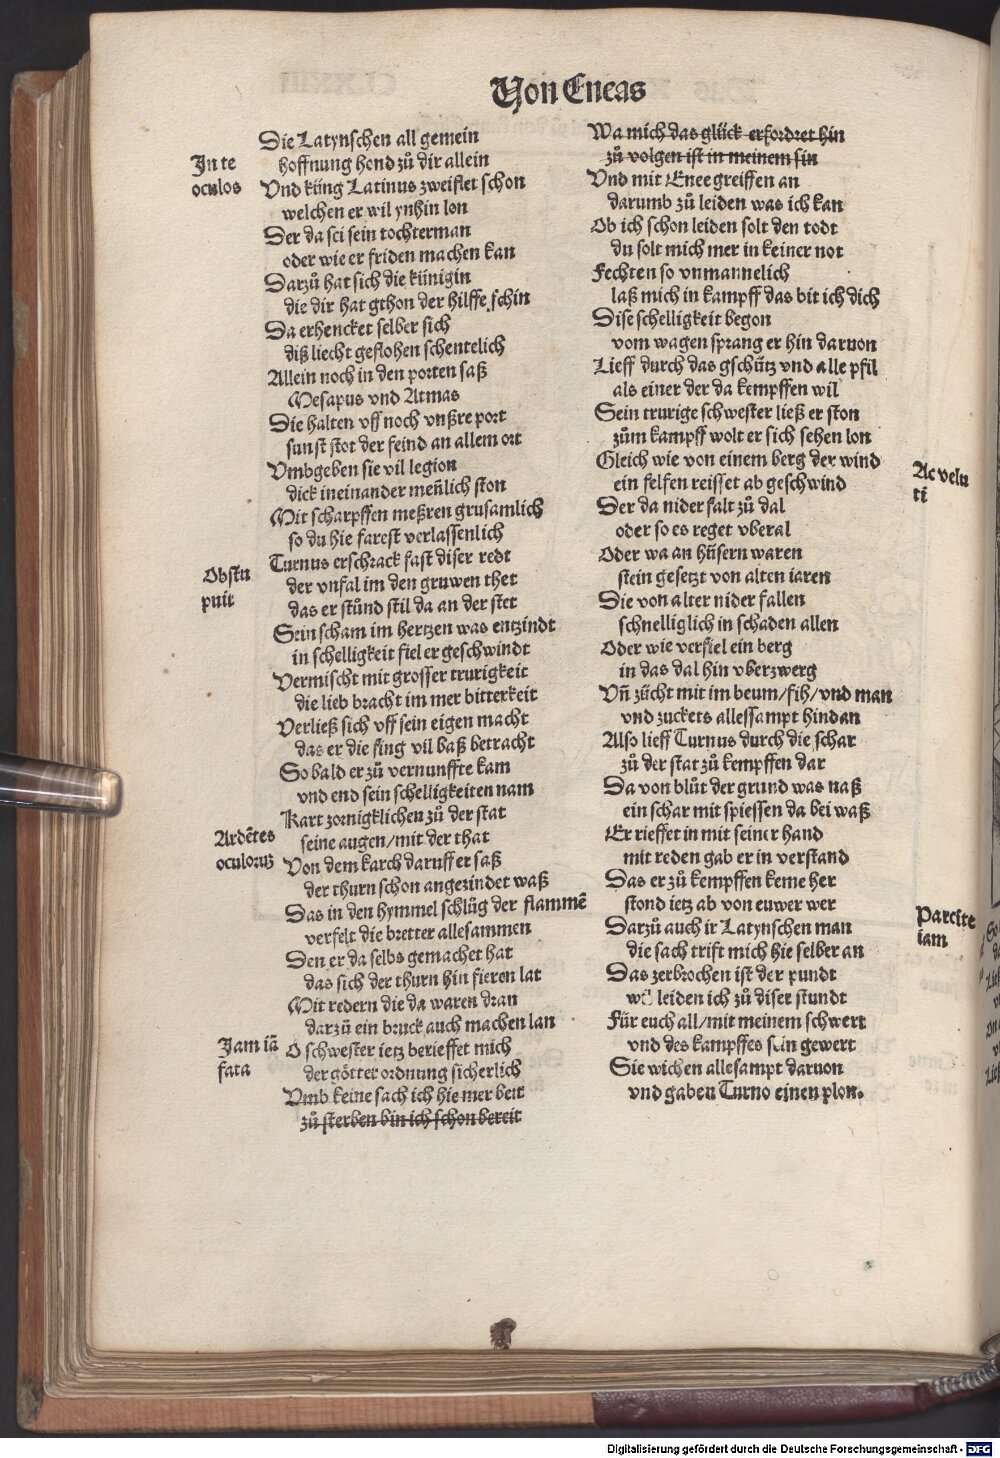 Von Eneas
Die Latynschen all gemein
In te
hoffnung hond zů dir allein
oculos
Vnd küng Latinus zweiflet schon
welchen er wil ynhin lon
Der da sei sein tochterman
oder wie er friden machen kan
Darzů hat sich die künigin
die dir hat gthon der hilffe schin
Da erhencket selber sich
diß liecht geflohen schentelich
Allein noch in den porten saß
Mesapus vnd Atmas
Die halten vff noch vnßre port
sunst stot der feind an allem ort
Vmbgeben sie vil legion
dick ineinander meñlich ston
Mit scharpffen meßren grusamlich
so du hie farest verlassenlich
Turnus erschrack fast diser redt
Obstu
der vnfal im den gruwen thet
puit
das er stůnd stil da an der stet
Sein scham im hertzen was entzindt
in schelligkeit fiel er geschwindt
Vermischt mit grosser trurigkeit
die lieb bracht im mer bitterkeit
Verließ sich vff sein eigen macht
das er die sing vil baß betracht
So bald er zů vernunffte kam
vnd end sein schelligkeiten nam
Kart zornigklichen zů der stat
Ardētes
seine augen/mit der that
oculoruʒ
Von dem karch daruff er saß
der thurn schon angezindet waß
Das in den hymmel schlůg der flammē
verfelt die bretter allesammen
Den er da selbs gemachet hat
das sich der thurn hin fieren lat
Mit redern die da waren dran
darzů ein bruck auch machen lan
Jam iā
O schwester ietz berieffet mich
fata
der götter ordnung sicherlich
Vmb keine sach ich hie mer beit
zů sterben bin ich schon bereit
Wa mich das glück erfordret hin
zů volgen ist in meinem sin
Vnd mit Enee greiffen an
darumb zů leiden was ich kan
Ob ich schon leiden solt den todt
du solt mich mer in keiner not
Fechten so vnmannelich
laß mich in kampff das bit ich dich
Dise schelligkeit begon
vom wagen sprang er hin daruon
Lieff durch das gschütz vnd alle pfil
als einer der da kempffen wil
Sein trurige schwester ließ er ston
zům kampff wolt er sich sehen lon
Gleich wie von einem berg der wind
Ac velu
ein felsen reisset ab geschwind
ti
Der da nider falt zů dal
oder so es reget vberal
Oder wa an hüsern waren
stein gesetzt von alten iaren
Die von alter nider fallen
schnelliglich in schaden allen
Oder wie verfiel ein berg
in das dal hin vberzwerg
Vñ zücht mit im beum/fih/vnd man
vnd zuckets allessampt hindan
Also lieff Turnus durch die schar
zů der stat zů kempffen dar
Da von blůt der grund was naß
ein schar mit spiessen da bei waß
Er rieffet in mit seiner hand
mit reden gab er in verstand
Das er zů kempffen keme her
stond ietz ab von euwer wer
Parcite
Darzů auch ir Latynschen man
iam
die sach trift mich hie selber an
Das zerbrochen ist der pundt
leiden ich zů diser stundt
Für euch all/mit meinem schwert
vnd des kampffes sein gewert
Sie wichen allesampt daruon
vnd gaben Turno einen plon.
Digitalisierung gefördert durch die Deutsche Forschungsgemeinschaft - DFG